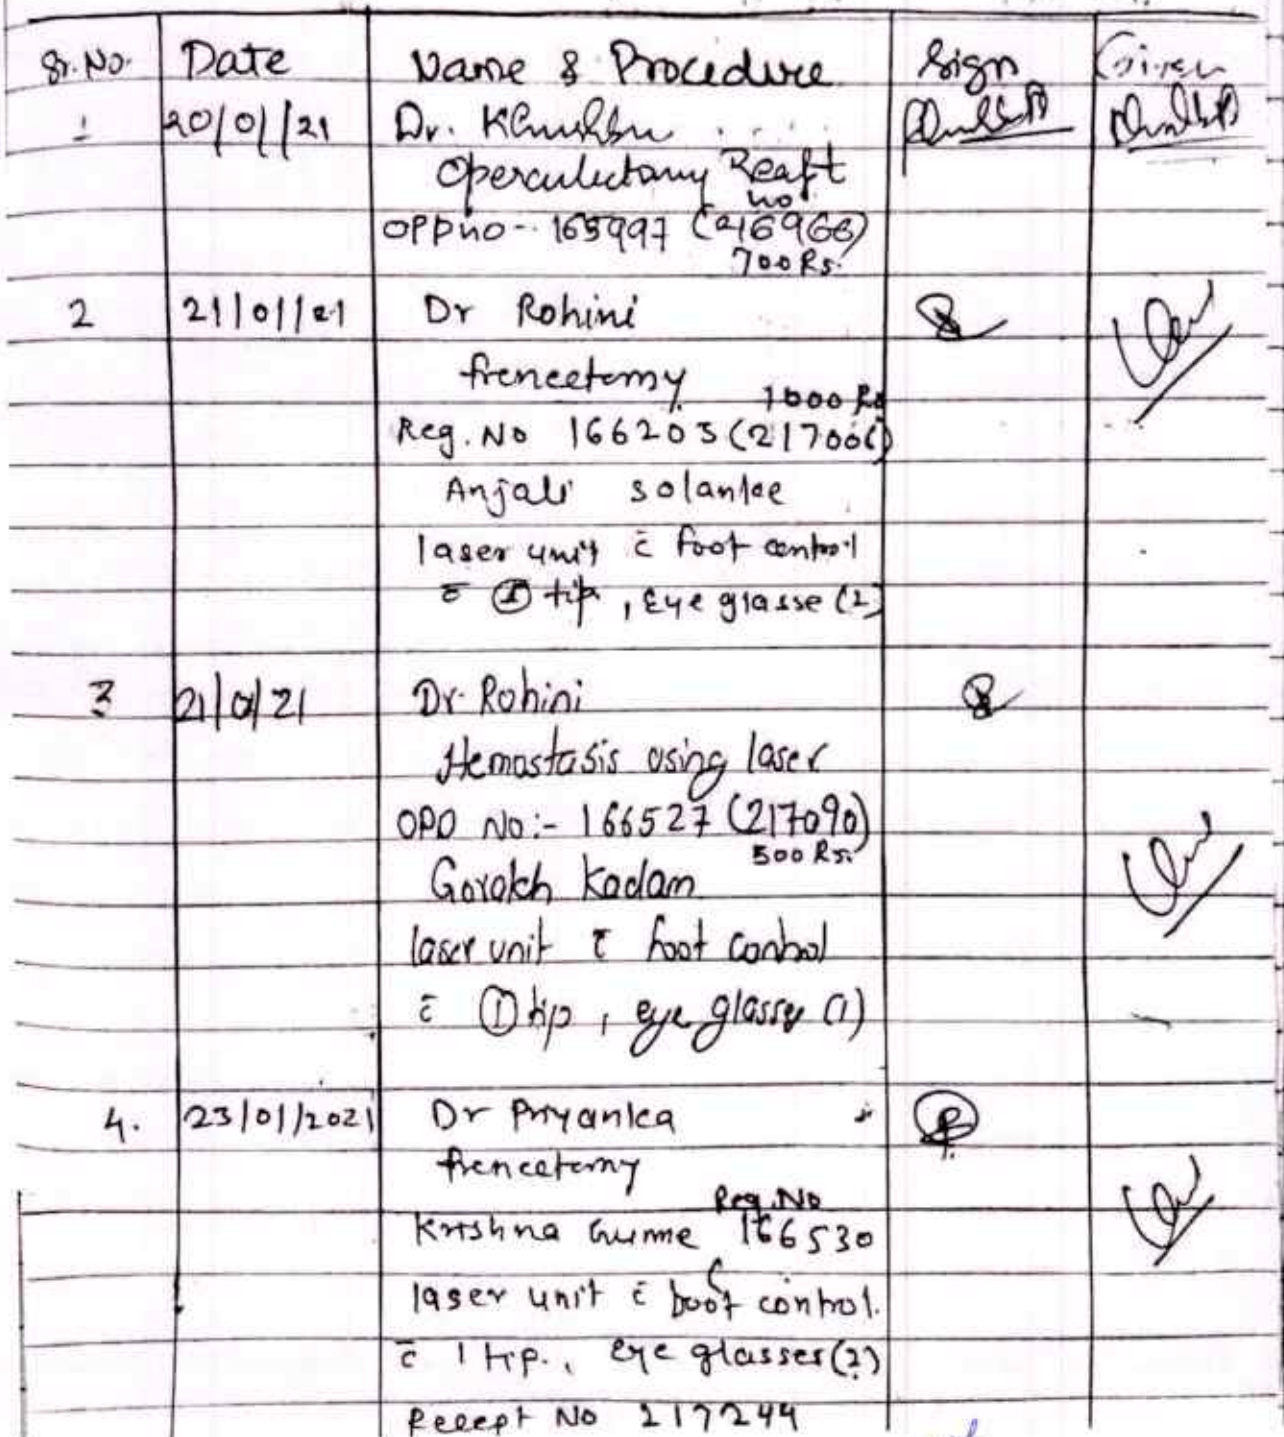 Sr. No. Date Name & Procedure Sign Given
1 20/01/21 Dr. Khushbu
Operculectomy Recept
no
OPD no - 165997 (216966)
700 Rs.
2 21/01/21 Dr Rohini
frencetomy 1000 Rs
Reg. No 166203 (217006)
Anjali Solankee
laser unit c̄ foot control
c̄ ① tip, Eye glasse (2)
3 21/01/21 Dr. Rohini
Hemostasis using laser
OPD No:- 166527 (217090)
500 Rs.
Gorakh Kadam
laser unit c̄ foot control
c̄ ① tip, eye glasses (1)
4. 23/01/2021 Dr Priyanka
frencetomy
Reg. No
Krishna 166530
laser unit c̄ foot control.
c̄ 1 tip., eye glasses (2)
Recept No 217244